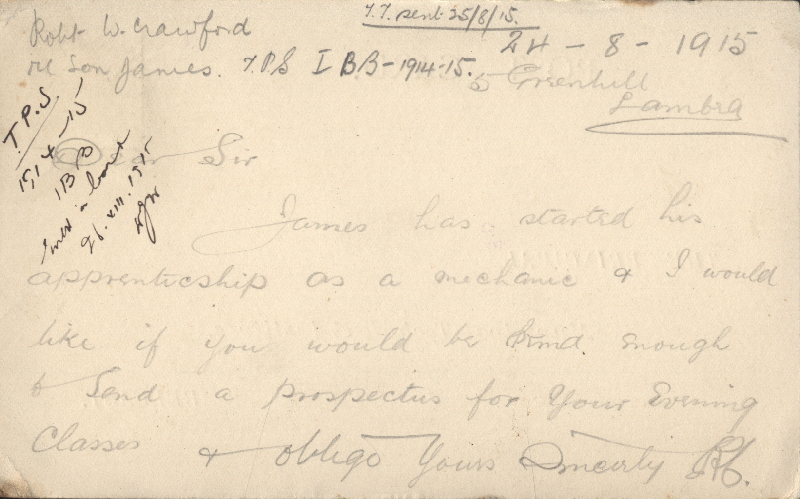 Robt W. Crawford
re Son James. T.P.S I BB - 1914-15.
T.T. sent 25/8/15.
24 - 8 - 1915
5 Greenhill
Lambra
T.P.S.
1914-15
1B
in
26.viii.1915
Dear Sir
James has started his
apprenticeship as a mechanic & I would
like if you would be kind enough
to Send a prospectus for Your Evening
Classes & oblige Yours Sincerly